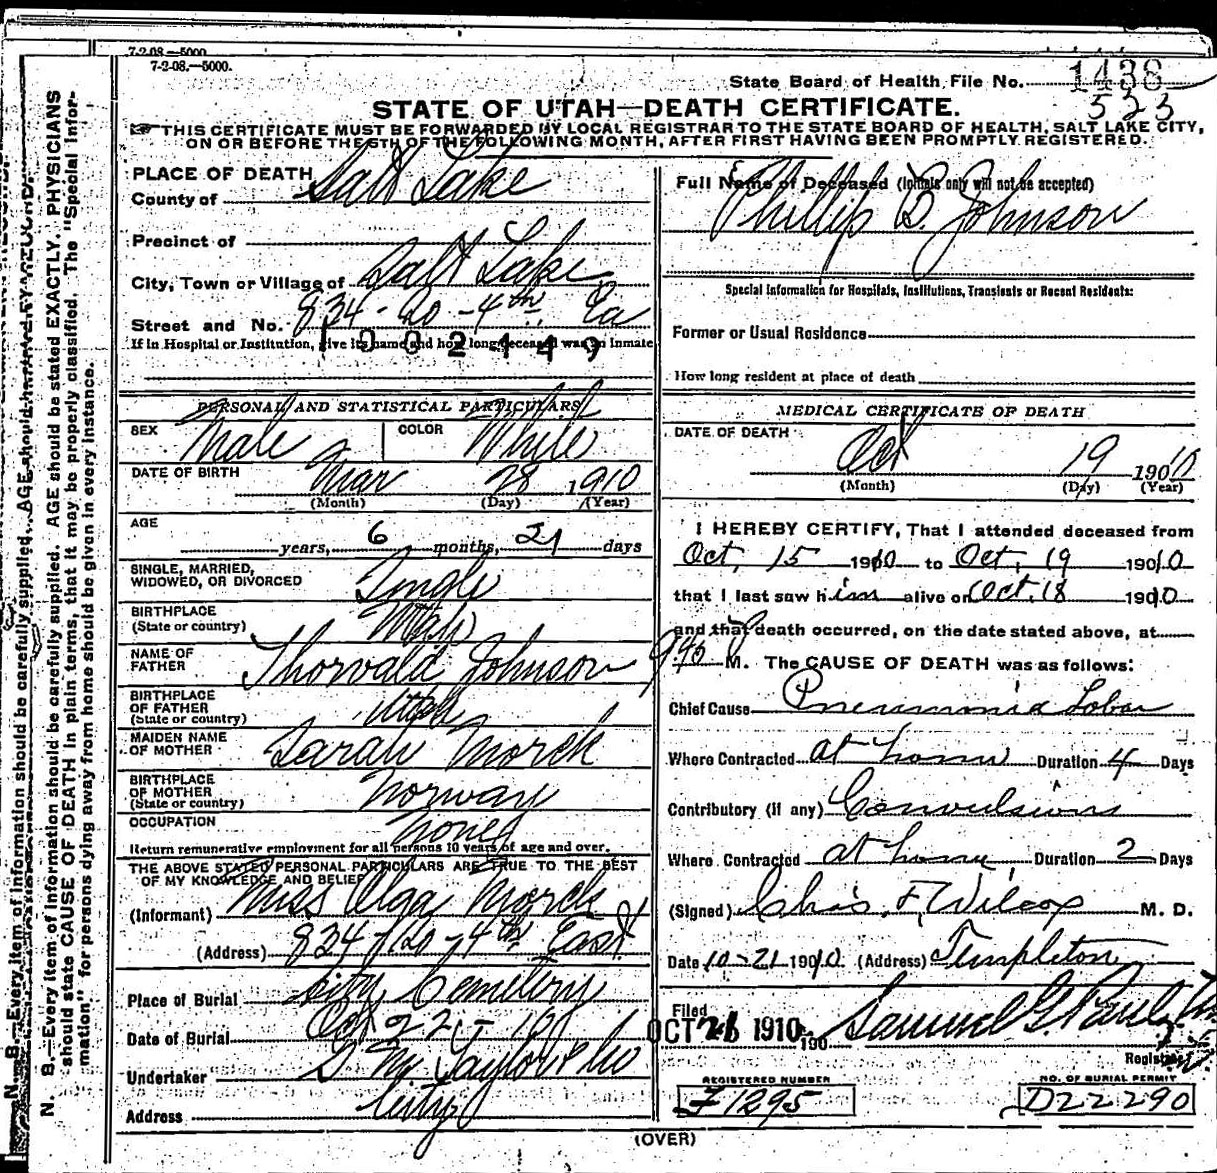 7-2-08.—5000.
7-2-08.—5000.
State Board of Health File No. 1438
523
STATE OF UTAH—DEATH CERTIFICATE.
THIS CERTIFICATE MUST BE FORWARDED BY LOCAL REGISTRAR TO THE STATE BOARD OF HEALTH, SALT LAKE CITY,
ON OR BEFORE THE 5TH OF THE FOLLOWING MONTH, AFTER FIRST HAVING BEEN PROMPTLY REGISTERED.
N. B.—Every item of information should be carefully supplied. AGE should be stated EXACTLY. PHYSICIANS
should state CAUSE OF DEATH in plain terms, that it may be properly classified. The "Special Infor-
mation" for persons dying away from home should be given in every instance.
PLACE OF DEATH
County of Salt Lake
Precinct of
City, Town or Village of Salt Lake
Street and No. 834 - So - 4th Ea
If in Hospital or Institution, give its name and how long deceased was an inmate
1002449
PERSONAL AND STATISTICAL PARTICULARS
SEX Male COLOR White
DATE OF BIRTH Mar 28 1910
(Month) (Day) (Year)
AGE
years, 6 months, 21 days
SINGLE, MARRIED,
WIDOWED, OR DIVORCED Single
BIRTHPLACE
(State or country) Utah
NAME OF
FATHER Thorvald Johnson
BIRTHPLACE
OF FATHER
(State or country) Utah
MAIDEN NAME
OF MOTHER Sarah Morck
BIRTHPLACE
OF MOTHER
(State or country) Norway
OCCUPATION None
Return remunerative employment for all persons 10 years of age and over.
THE ABOVE STATED PERSONAL PARTICULARS ARE TRUE TO THE BEST
OF MY KNOWLEDGE AND BELIEF
(Informant) Miss Olga Morck
(Address) 834 So - 4th East
Place of Burial City Cemetery
Date of Burial Oct 22
Undertaker S. M. Taylor & Co
Address City
Full Name of Deceased (Initials only will not be accepted)
Phillip B. Johnson
Special Information for Hospitals, Institutions, Transients or Recent Residents:
Former or Usual Residence
How long resident at place of death
MEDICAL CERTIFICATE OF DEATH
DATE OF DEATH
Oct 19 1910
(Month) (Day) (Year)
I HEREBY CERTIFY, That I attended deceased from
Oct. 15 1910 to Oct. 19 1910
that I last saw him alive on Oct. 18 1910
and that death occurred, on the date stated above, at
M. The CAUSE OF DEATH was as follows:
Chief Cause Pneumonia Lobar
Where Contracted at home Duration 4 Days
Contributory (if any) Convulsions
Where Contracted at home Duration 2 Days
(Signed) Chas. F. Wilcox M. D.
Date 10-21-1910 (Address) Templeton
Filed
OCT 1910 190 Samuel G. Paul
Registrar
REGISTERED NUMBER
F1295
NO. OF BURIAL PERMIT
D22290
(OVER)